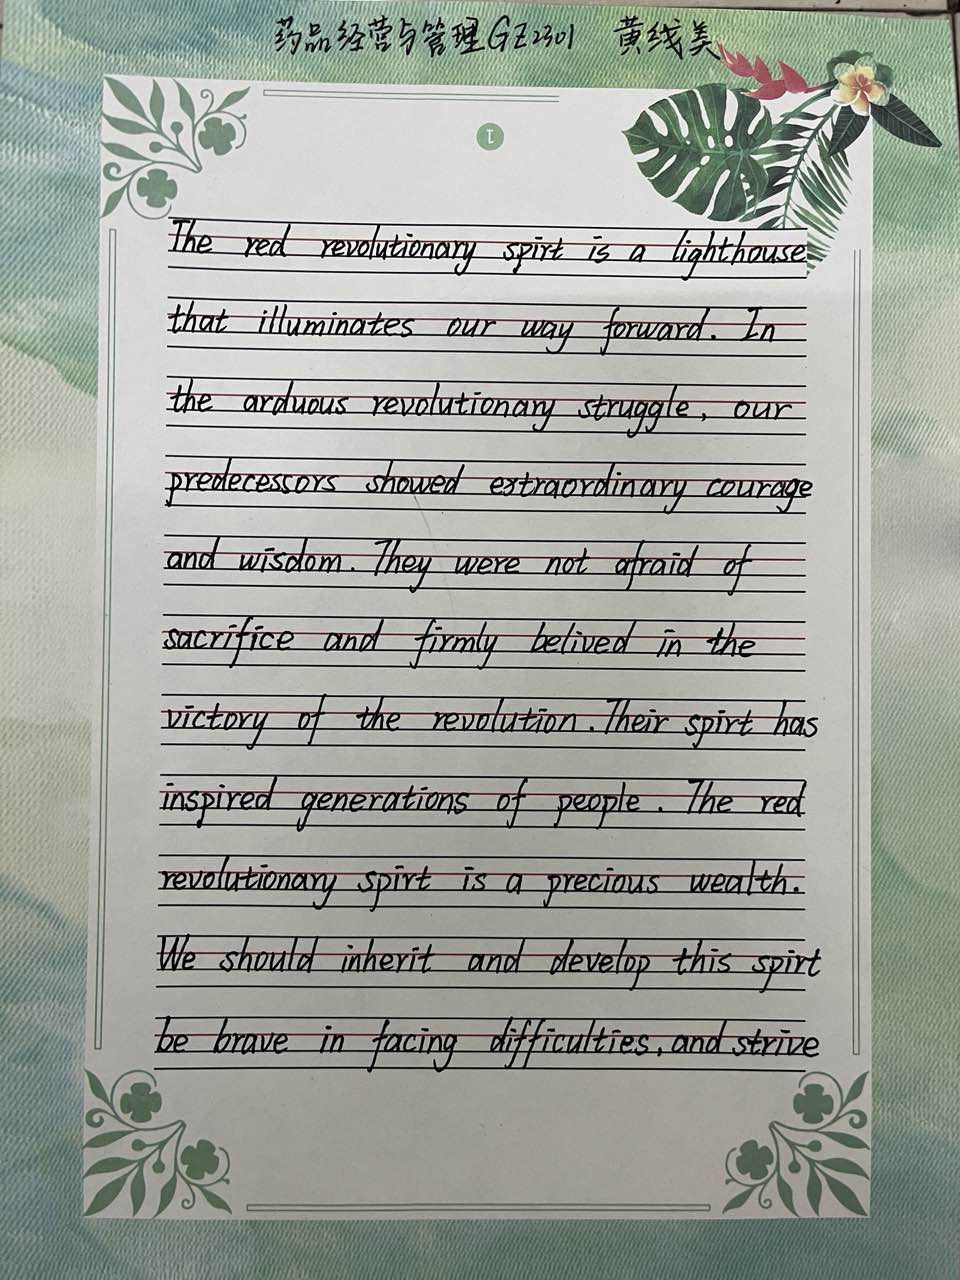 药品经营与管理GZ2301 黄线美
1
The red revolutionary spirt is a lighthouse
that illuminates our way forward. In
the arduous revolutionary struggle, our
predecessors showed extraordinary courage
and wisdom. They were not afraid of
sacrifice and firmly belived in the
victory of the revolution. Their spirt has
inspired generations of people. The red
revolutionary spirt is a precious wealth.
We should inherit and develop this spirt
be brave in facing difficulties, and strive